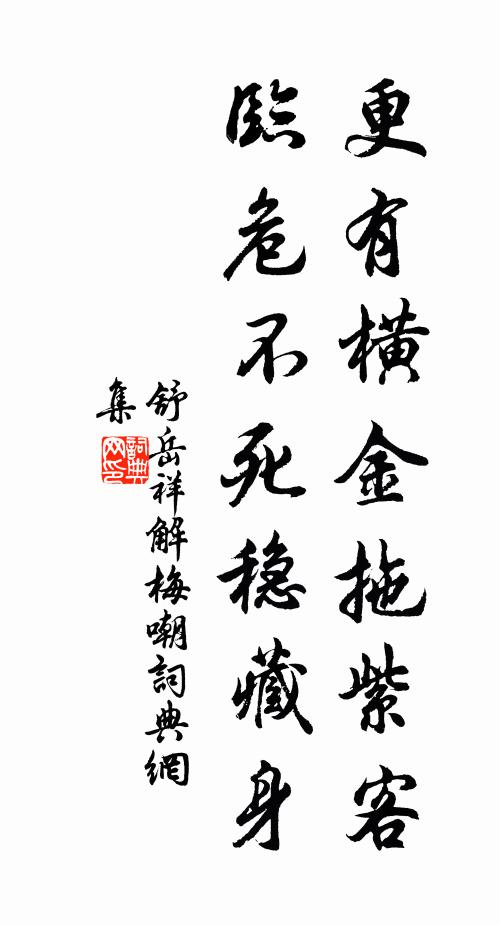 更有橫金拖紫客
臨危不死穩藏身
舒岳祥解梅嘲詞典網
集
詞典網印